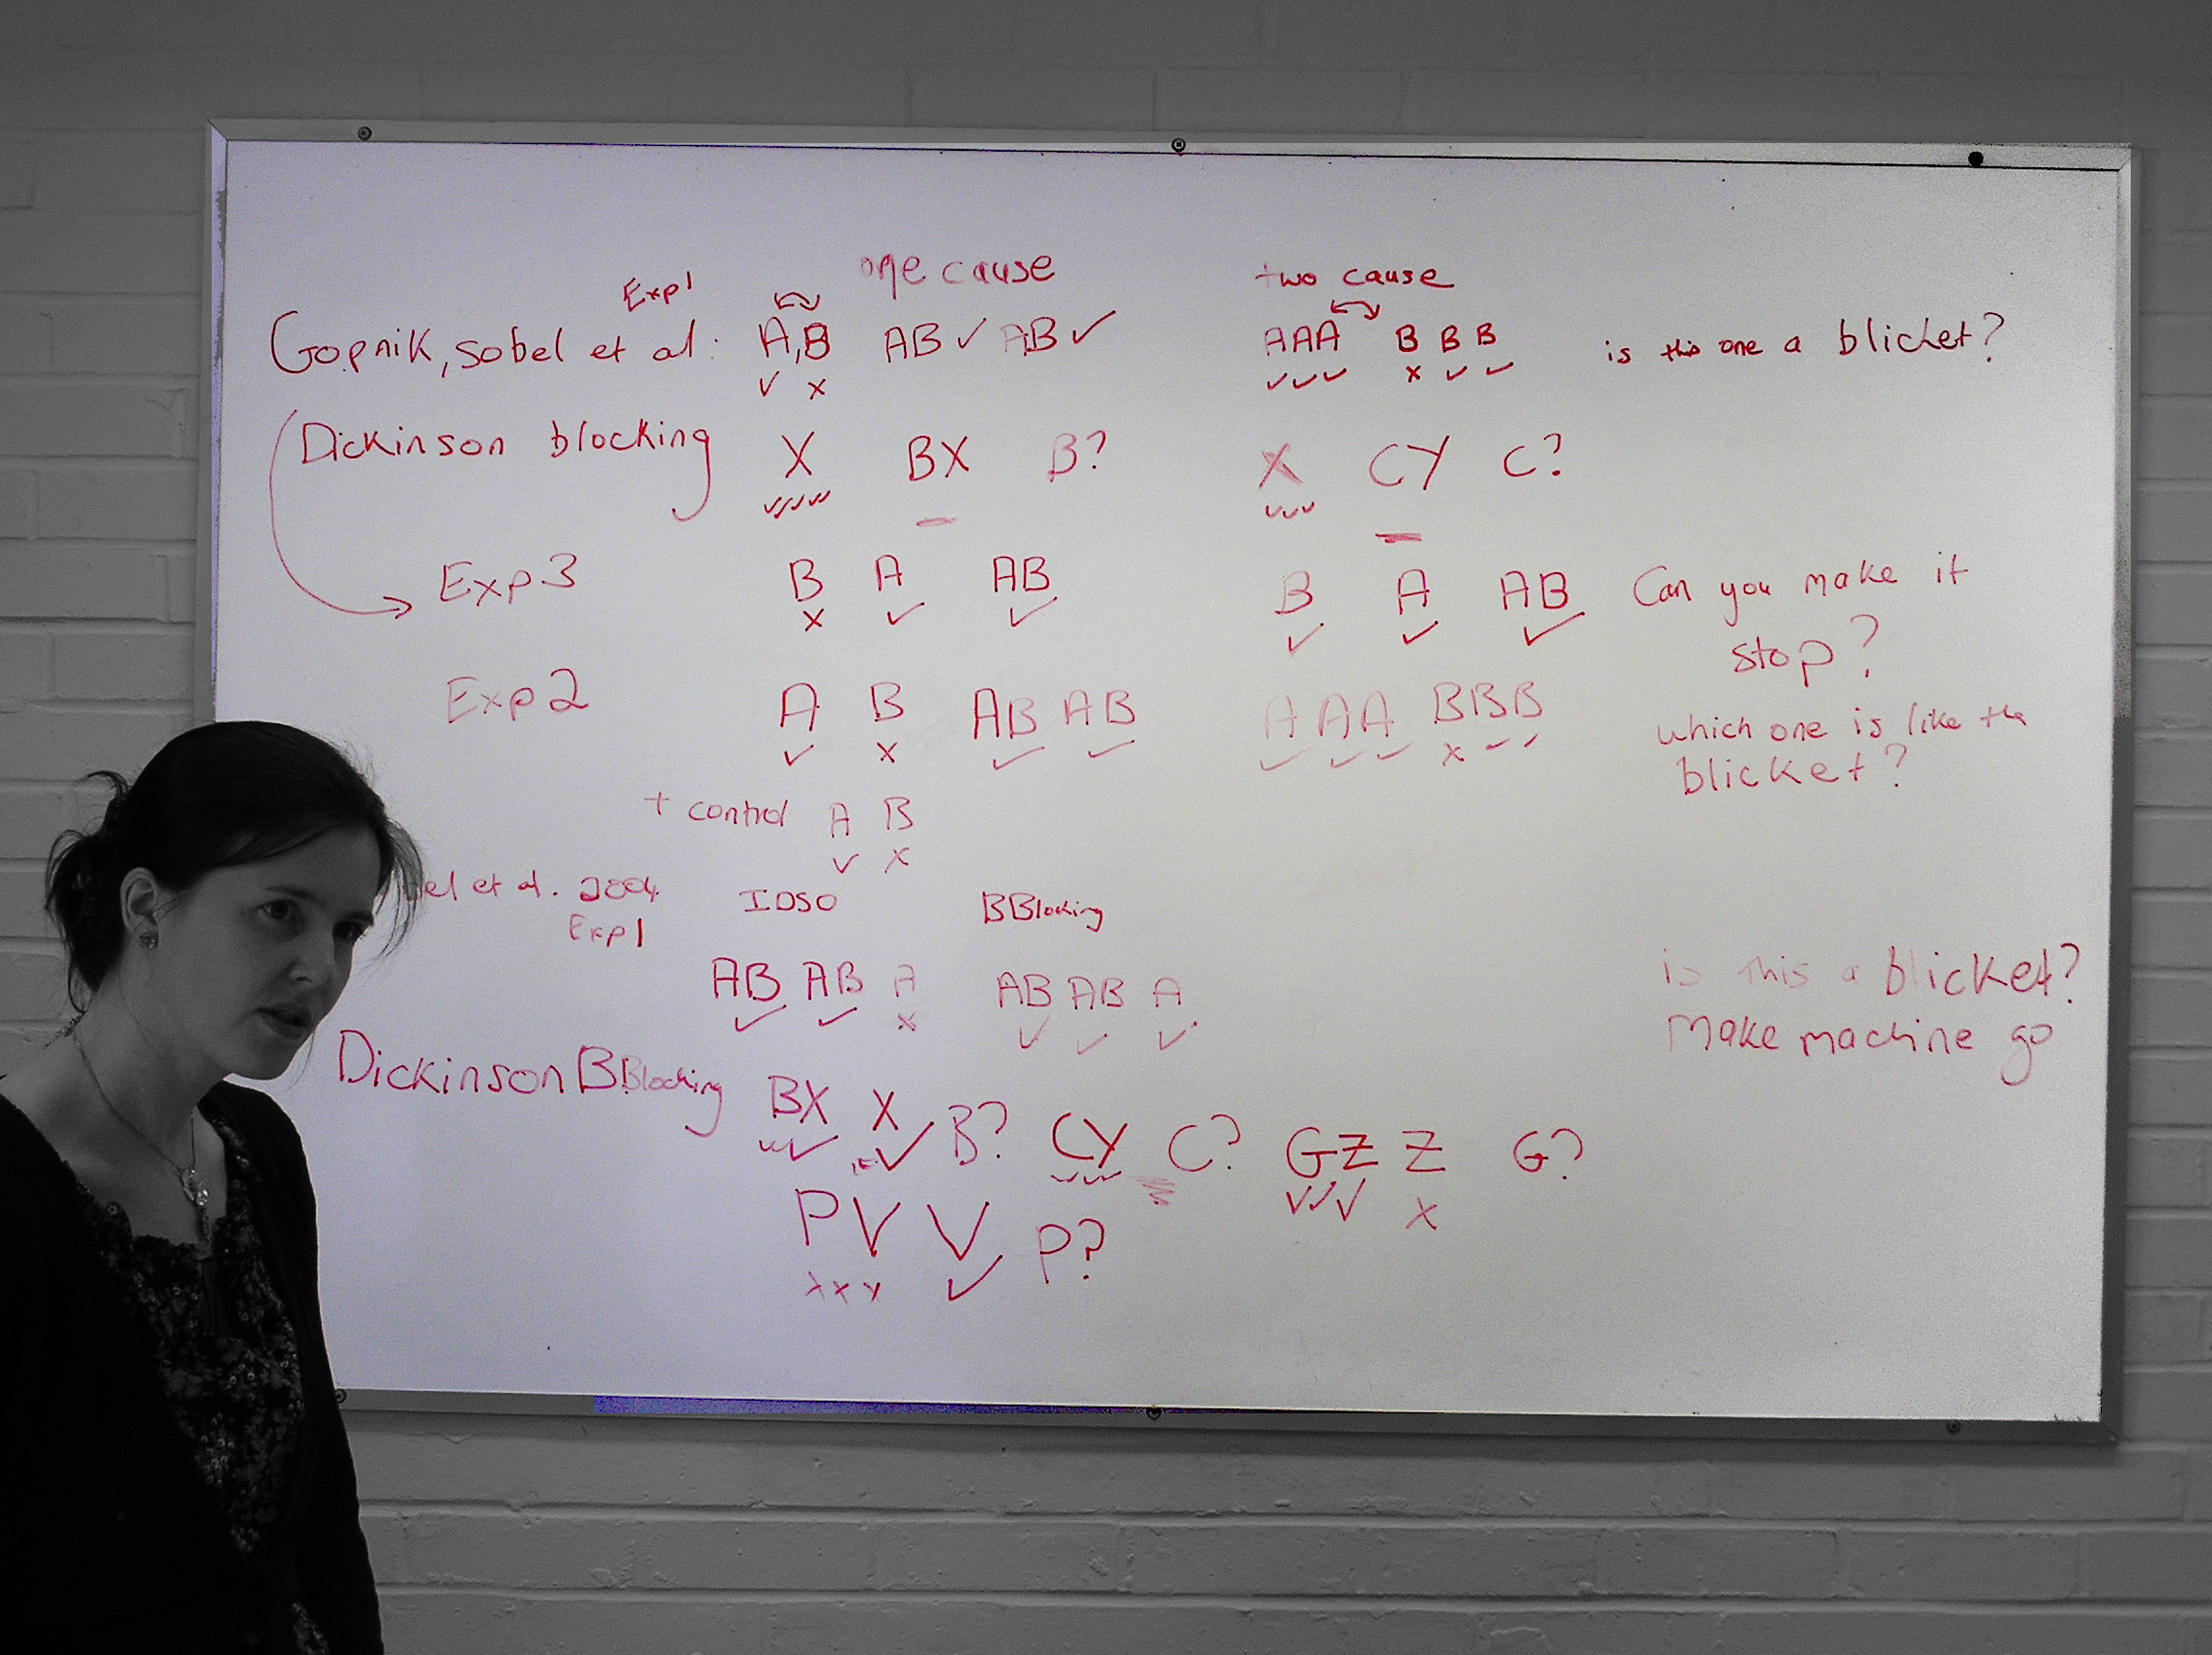 one cause two cause
Exp1
Gopnik, Sobel et al: A,B AB ✓ AB ✓ AAA B B B is this one a blicket?
✓ x ✓✓✓ x ✓ ✓
Dickinson blocking X BX B? X CY C?
✓✓✓✓ ✓✓✓
Exp3 B A AB B A AB Can you make it
x ✓ ✓ ✓ ✓ ✓ stop?
Exp2 A B AB AB A A A B B B which one is like the
✓ x ✓ ✓ ✓ ✓ ✓ x ✓ ✓ blicket?
+ control A B
✓ x
el et al. 2004 IDSO BBlocking
Exp1
AB AB A AB AB A is this a blicket?
✓ ✓ x ✓ ✓ ✓ Make machine go
Dickinson BBlocking BX X B? CY C? GZ Z G?
✓✓ ✓ ✓✓✓ ✓✓✓ x
PV V P?
xxx ✓